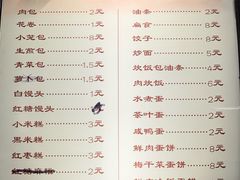 肉包 2元
花卷 1元
小笼包 8元
生煎包 2元
青菜包 1.5元
萝卜包 1.5元
白馒头 1元
红糖馒头
小米糕 3元
黑米糕 3元
红枣糕 3元
红糖麻糍 2元
油条 2元
扁食 8元
饺子 8元
炒面 5元
炊饭包油条 5元
肉炊饭 6元
水煮蛋 2元
茶叶蛋 2元
咸鸭蛋 3元
鲜肉蛋饼 8元
梅干菜蛋饼 8元